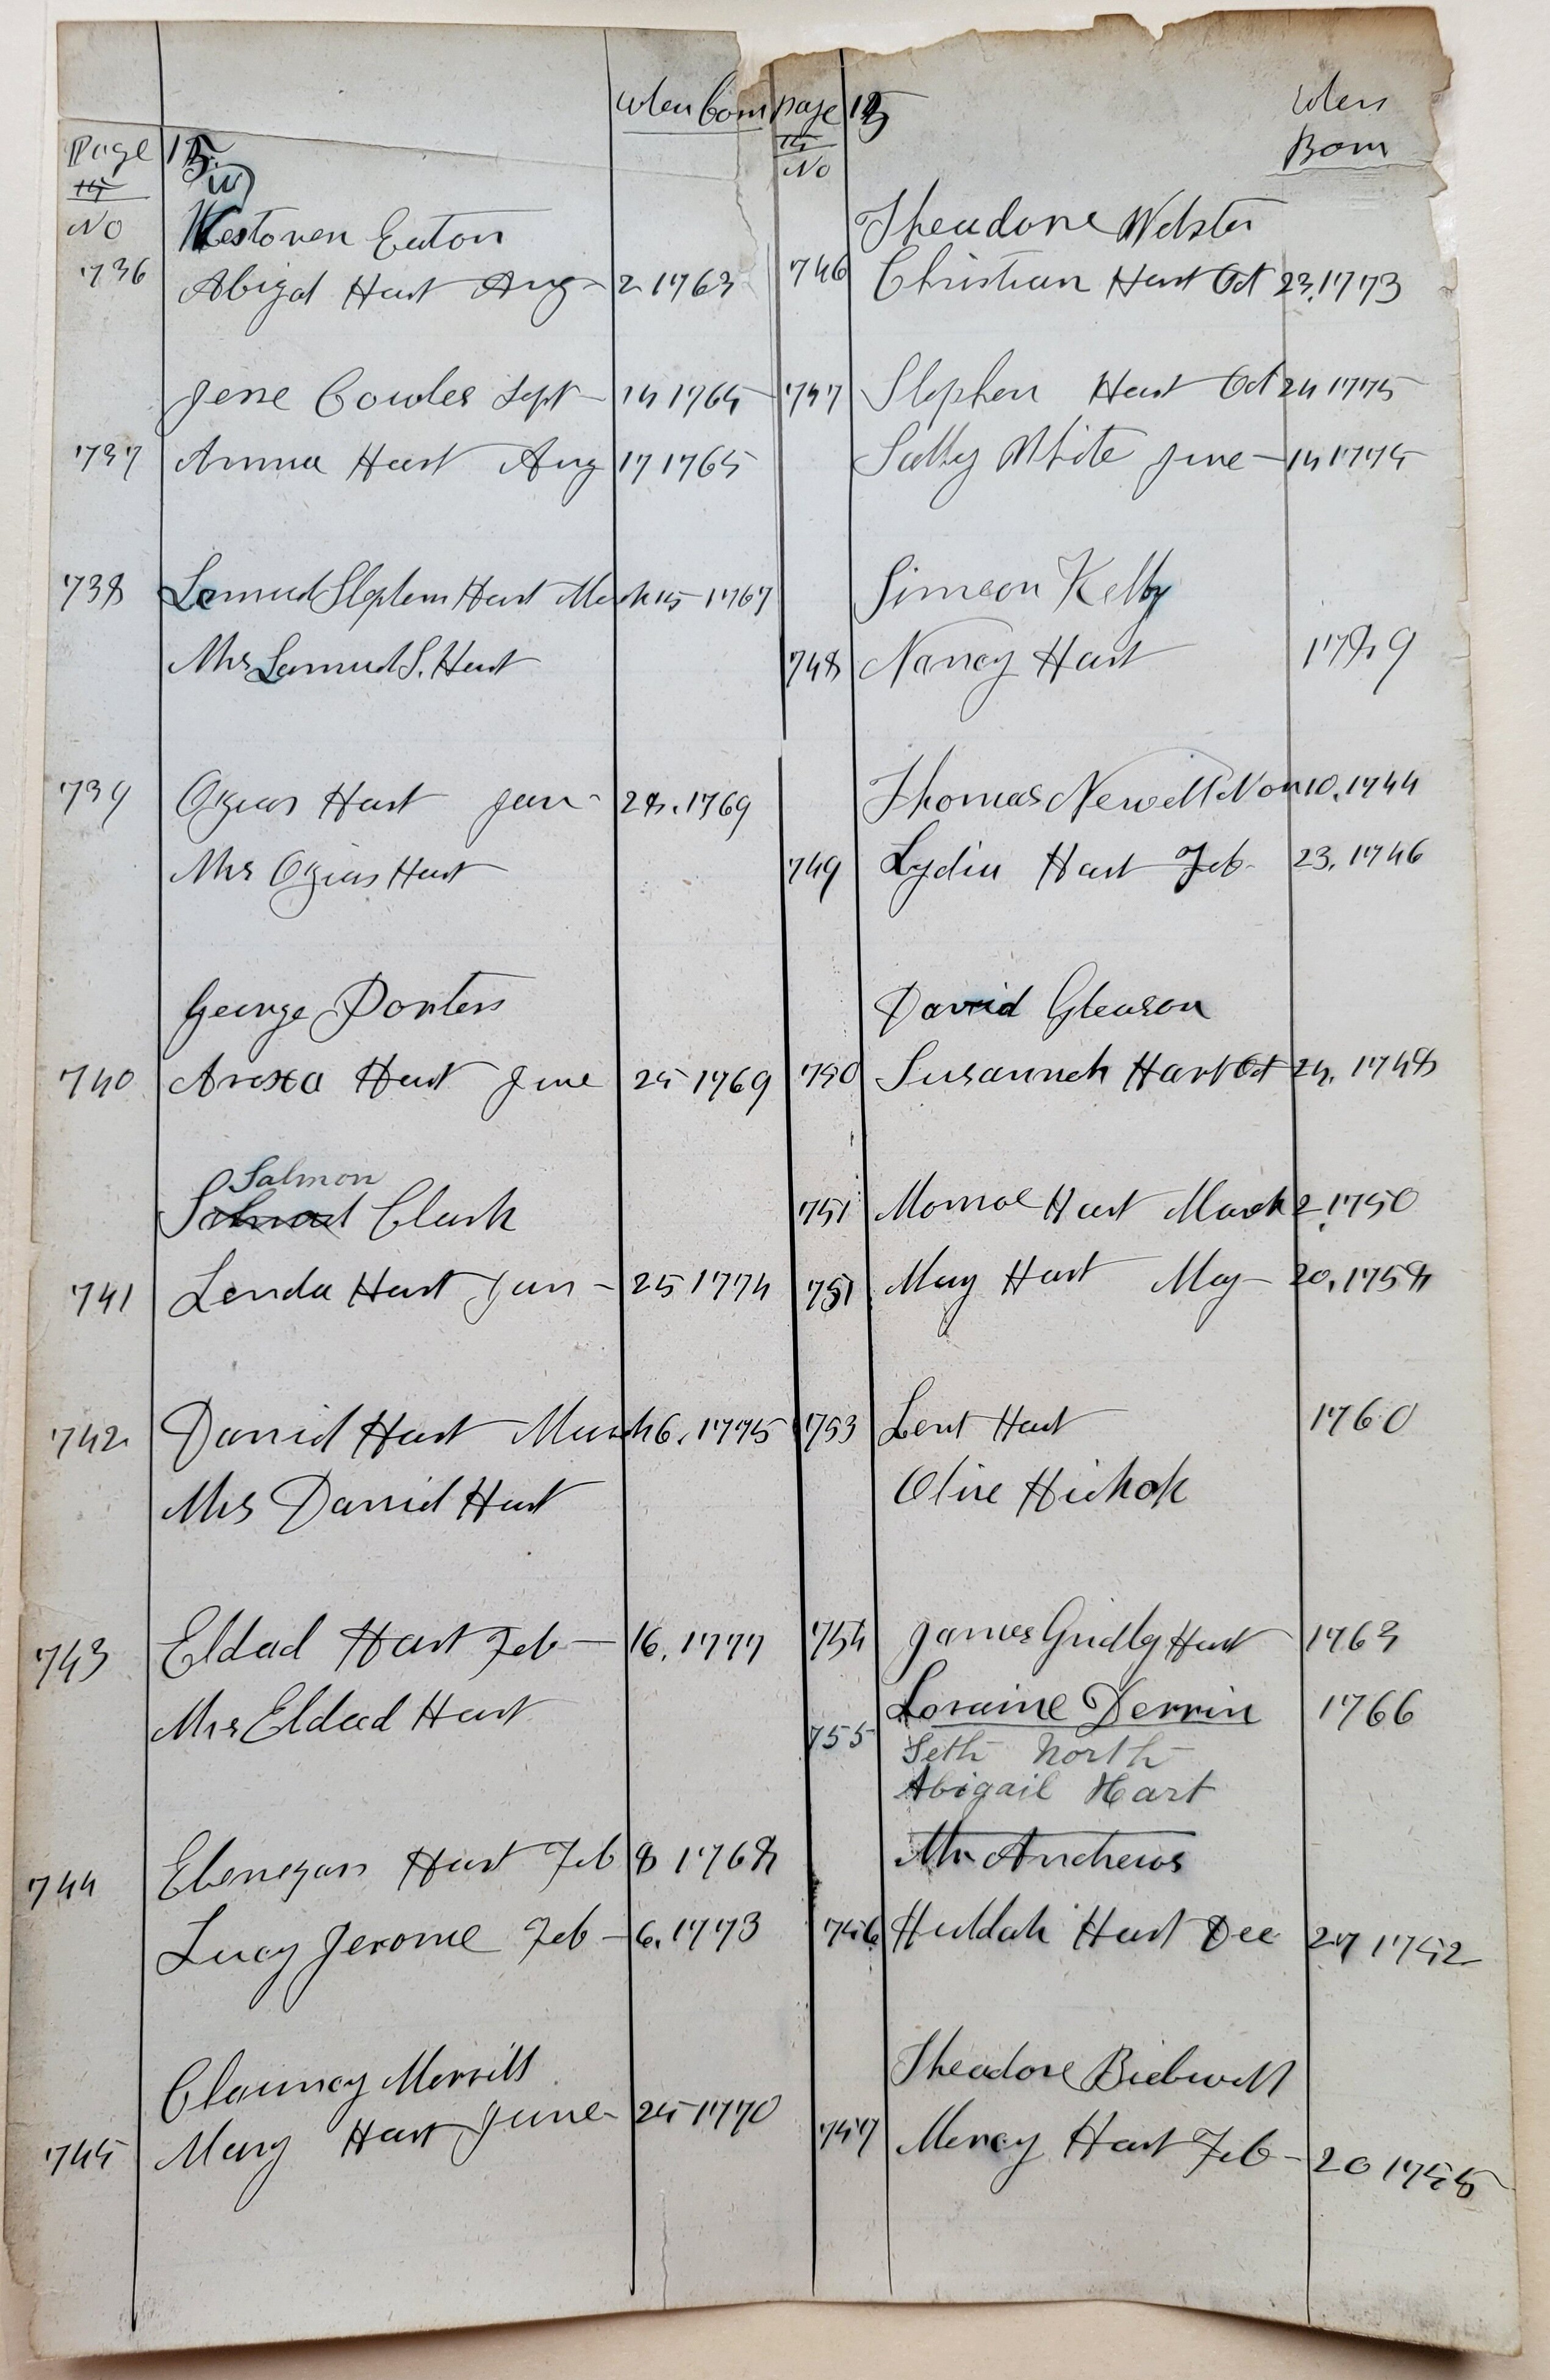 Page 15
14
No
When born
W
Westoven Eaton
736 Abigal Hart Aug 2 1763
Jesse Cowles Sept 14 1765
737 Anna Hart Aug 17 1765
738 Lemuel Stephen Hart March 15 1767
Mrs Lemuel S. Hart
739 Ozias Hart Jan 28. 1769
Mrs Ozias Hart
George Porters
740 Arexa Hart June 25 1769
Salmon
Samuel Clark
741 Lenda Hart Jan 25 1774
742 Daniel Hart March 6. 1775
Mrs Daniel Hart
743 Eldad Hart Feb 16. 1777
Mrs Eldad Hart
744 Ebenezar Hart Feb 8 1768
Lucy Jerome Feb 6. 1773
Chauncy Merrills
745 Mary Hart June 25 1770
Page 15
14
No
When
Born
Theadore Webster
746 Christian Hart Oct 23. 1773
747 Stephen Hart Oct 24 1775
Sally White June 14 1775
Simeon Kelby
748 Nancy Hart 1789
Thomas Newell Nov 10. 1744
749 Lydia Hart Feb 23. 1746
David Gleason
750 Susannah Hart Oct 24. 1748
751 Monroe Hart March 2. 1750
751 May Hart May 20. 1758
753 Lent Hart 1760
Olive Hickok
754 James Gridley Hart 1763
Loraine Derrin 1766
755 Seth North
Abigail Hart
Mr Andrews
756 Huldah Hart Dec 27 1752
Theadore Bidwell
757 Mercy Hart Feb 20 1755